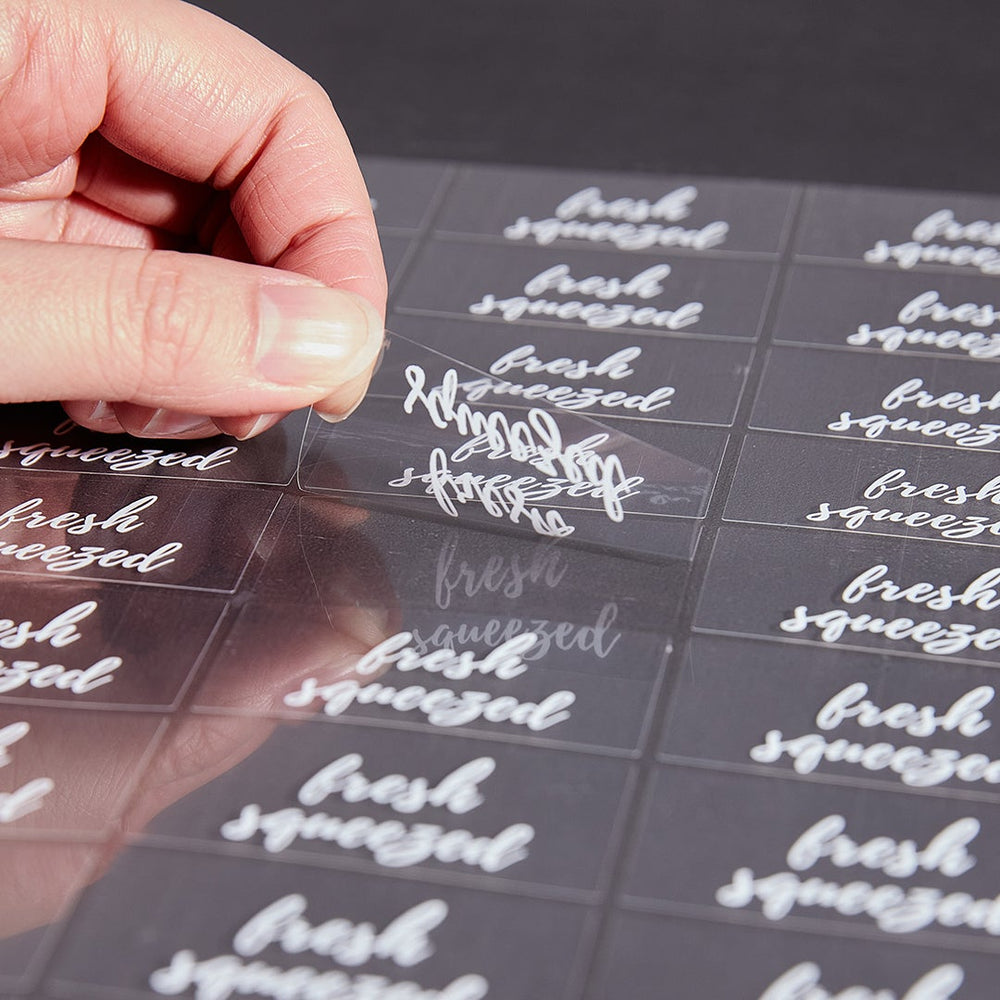 fresh
squeezed
fresh
squeezed
fresh
squeezed
fresh
squeezed
fresh
squeezed
fresh
squeezed
squeezed
fresh
squeezed
fresh
squeezed
fresh
squeezed
fresh
squeezed
fresh
squeezed
fresh
squeezed
fresh
squeezed
fresh
squeezed
fresh
squeezed
fresh
squeezed
fresh
squeezed
fresh